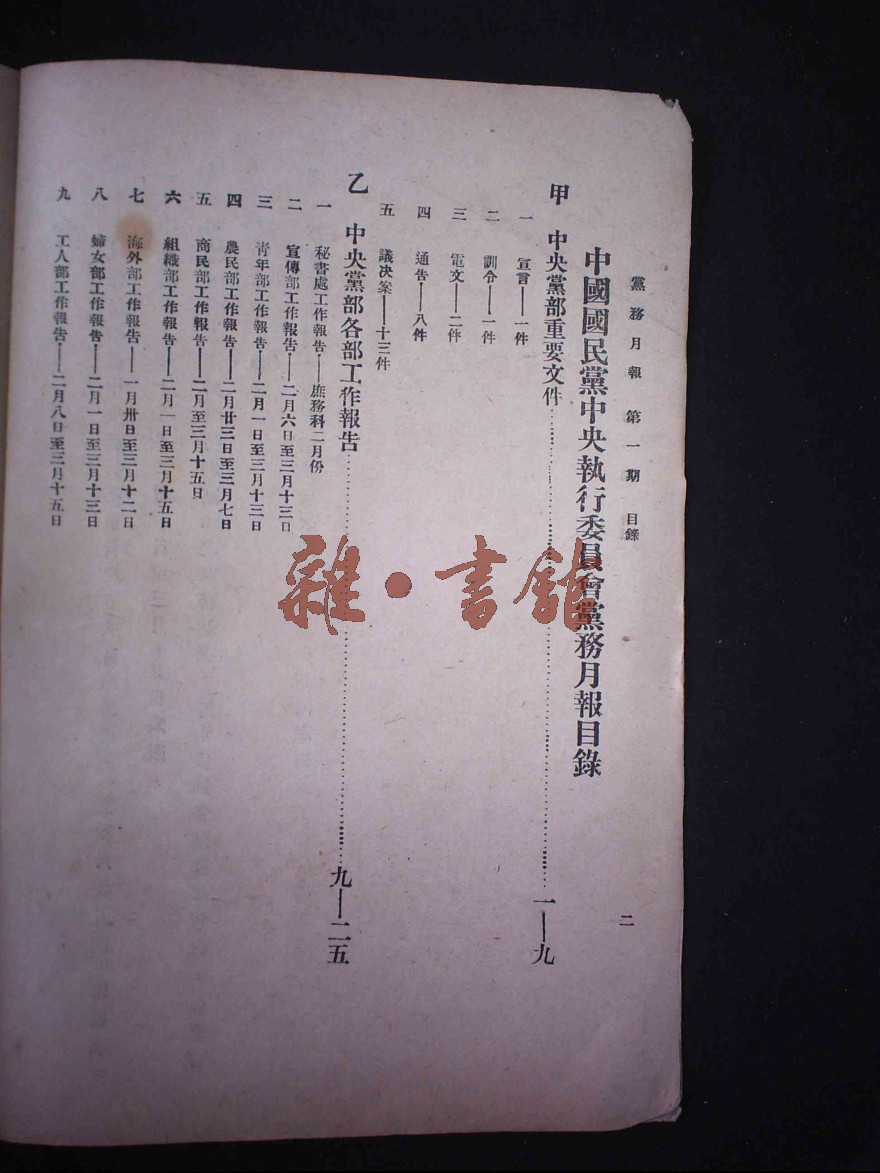 黨務月報 第一期 目錄
二
中國國民黨中央執行委員會黨務月報目錄
甲 中央黨部重要文件……一——九
一 宣言——一件
二 訓令——一件
三 電文——二件
四 通告——八件
五 議决案——十三件
乙 中央黨部各部工作報告……九——二五
一 秘書處工作報告——庶務科二月份
二 宣傳部工作報告——二月六日至三月十三日
三 青年部工作報告——二月一日至三月十三日
四 農民部工作報告——二月廿三日至三月七日
五 商民部工作報告——二月至三月十五日
六 組織部工作報告——二月一日至三月十五日
七 海外部工作報告——一月卅日至三月十二日
八 婦女部工作報告——二月一日至三月十三日
九 工人部工作報告——二月八日至三月十五日
雜·書館